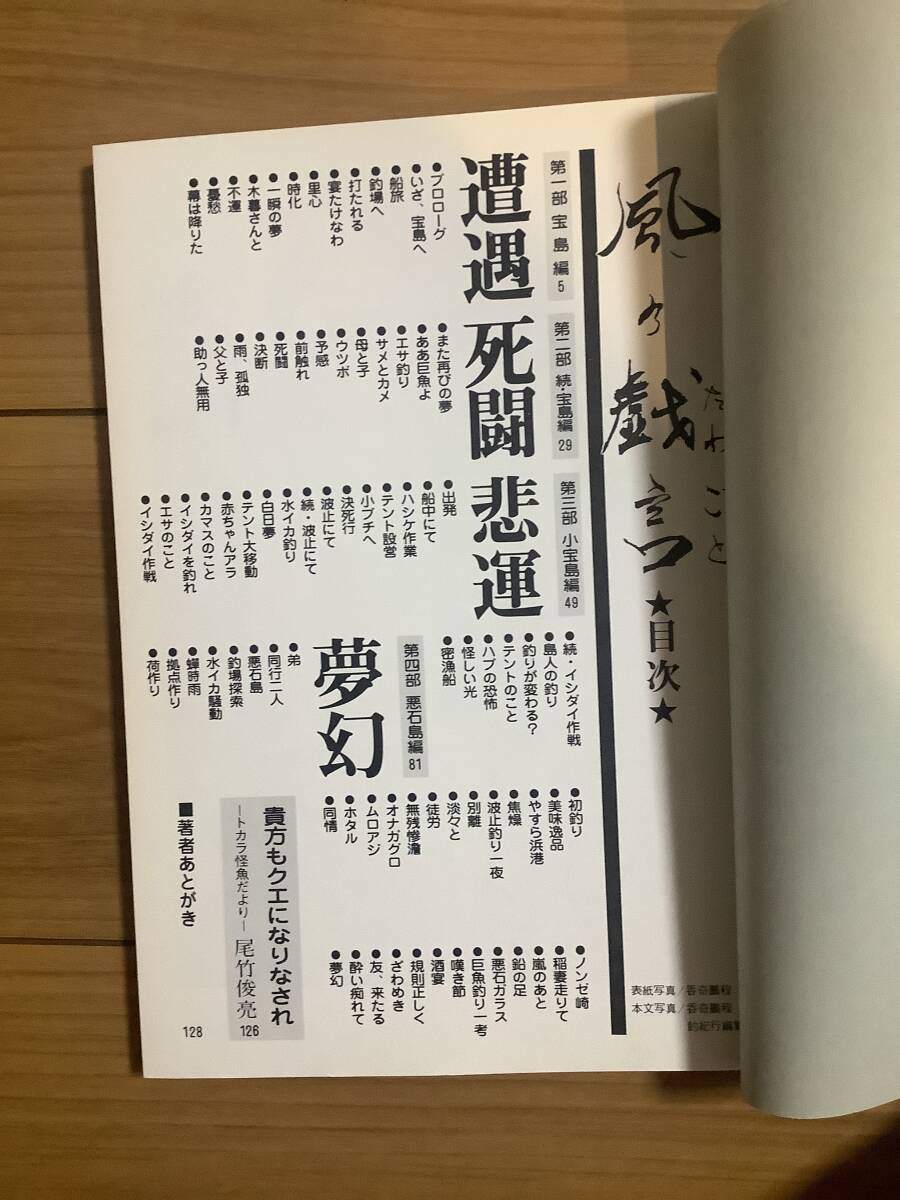 風の戯言
たわごと
★目次★
第一部 宝島編 5
遭遇
●プロローグ
●いざ、宝島へ
●船旅
●釣場へ
●打たれる
●宴たけなわ
●里心
●時化
●一瞬の夢
●木暮さんと
●不運
●憂愁
●幕は降りた
第二部 続・宝島編 29
死闘
●また再びの夢
●ああ巨魚よ
●エサ釣り
●サメとカメ
●母と子
●ウツボ
●予感
●前触れ
●死闘
●決断
●雨、孤独
●父と子
●助っ人無用
第三部 小宝島編 49
悲運
●出発
●船中にて
●ハシケ作業
●テント設営
●小プチへ
●決死行
●波止にて
●続・波止にて
●水イカ釣り
●白日夢
●テント大移動
●赤ちゃんアラ
●カマスのこと
●イシダイを釣れ
●エサのこと
●イシダイ作戦
●続・イシダイ作戦
●島人の釣り
●釣りが変わる?
●テントのこと
●ハブの恐怖
●怪しい光
●密漁船
第四部 悪石島編 81
夢幻
●弟
●同行二人
●悪石島
●釣場探索
●水イカ騒動
●蟬時雨
●拠点作り
●荷作り
●初釣り
●美味逸品
●やすら浜港
●焦燥
●波止釣り一夜
●別離
●淡々と
●徒労
●無残惨澹
●オナガグロ
●ムロアジ
●ホタル
●同情
●ノンゼ崎
●稲妻走りて
●嵐のあと
●鉛の足
●悪石ガラス
●巨魚釣り一考
●嘆き節
●酒宴
●規則正しく
●ざわめき
●友、来たる
●酔い痴れて
●夢幻
貴方もクエになりなされ
—トカラ怪魚だより— 尾竹俊亮 126
■著者あとがき 128
表紙写真/香奇鵬程
本文写真/香奇鵬程
釣紀行編